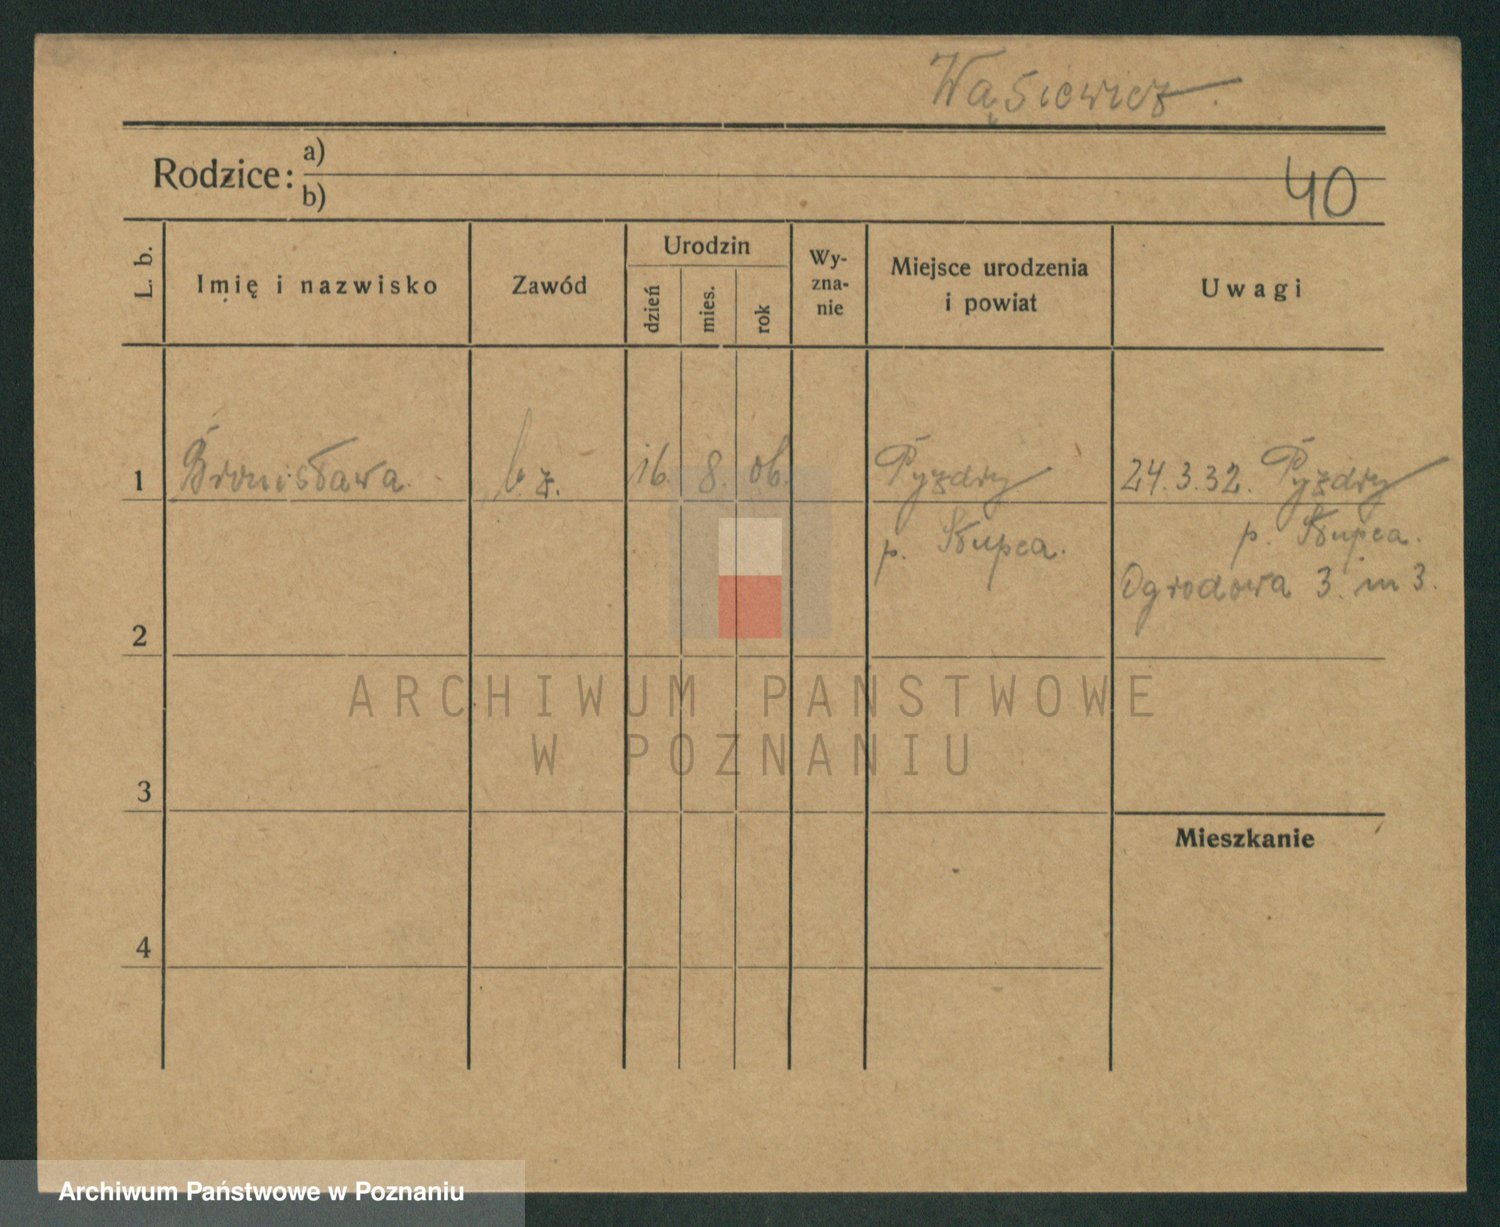 Wąsiewicz.
Rodzice: a)
b)
40
L. b.
Imię i nazwisko
Zawód
Urodzin
dzień
mies.
rok
Wy-
zna-
nie
Miejsce urodzenia
i powiat
Uwagi
1 Bronisława b. z. 16. 8. 06. Pyzdry 24.3.32. Pyzdry
p. Słupca. p. Słupca.
Ogrodowa 3. m 3.
2
3
Mieszkanie
4
ARCHIWUM PANSTWOWE
W POZNANIU
Archiwum Państwowe w Poznaniu